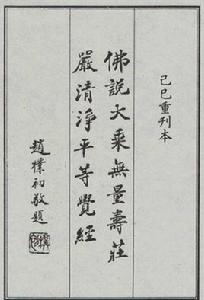 己巳重刊本
佛說大乘無量壽莊
嚴清淨平等覺經
趙樸初敬題